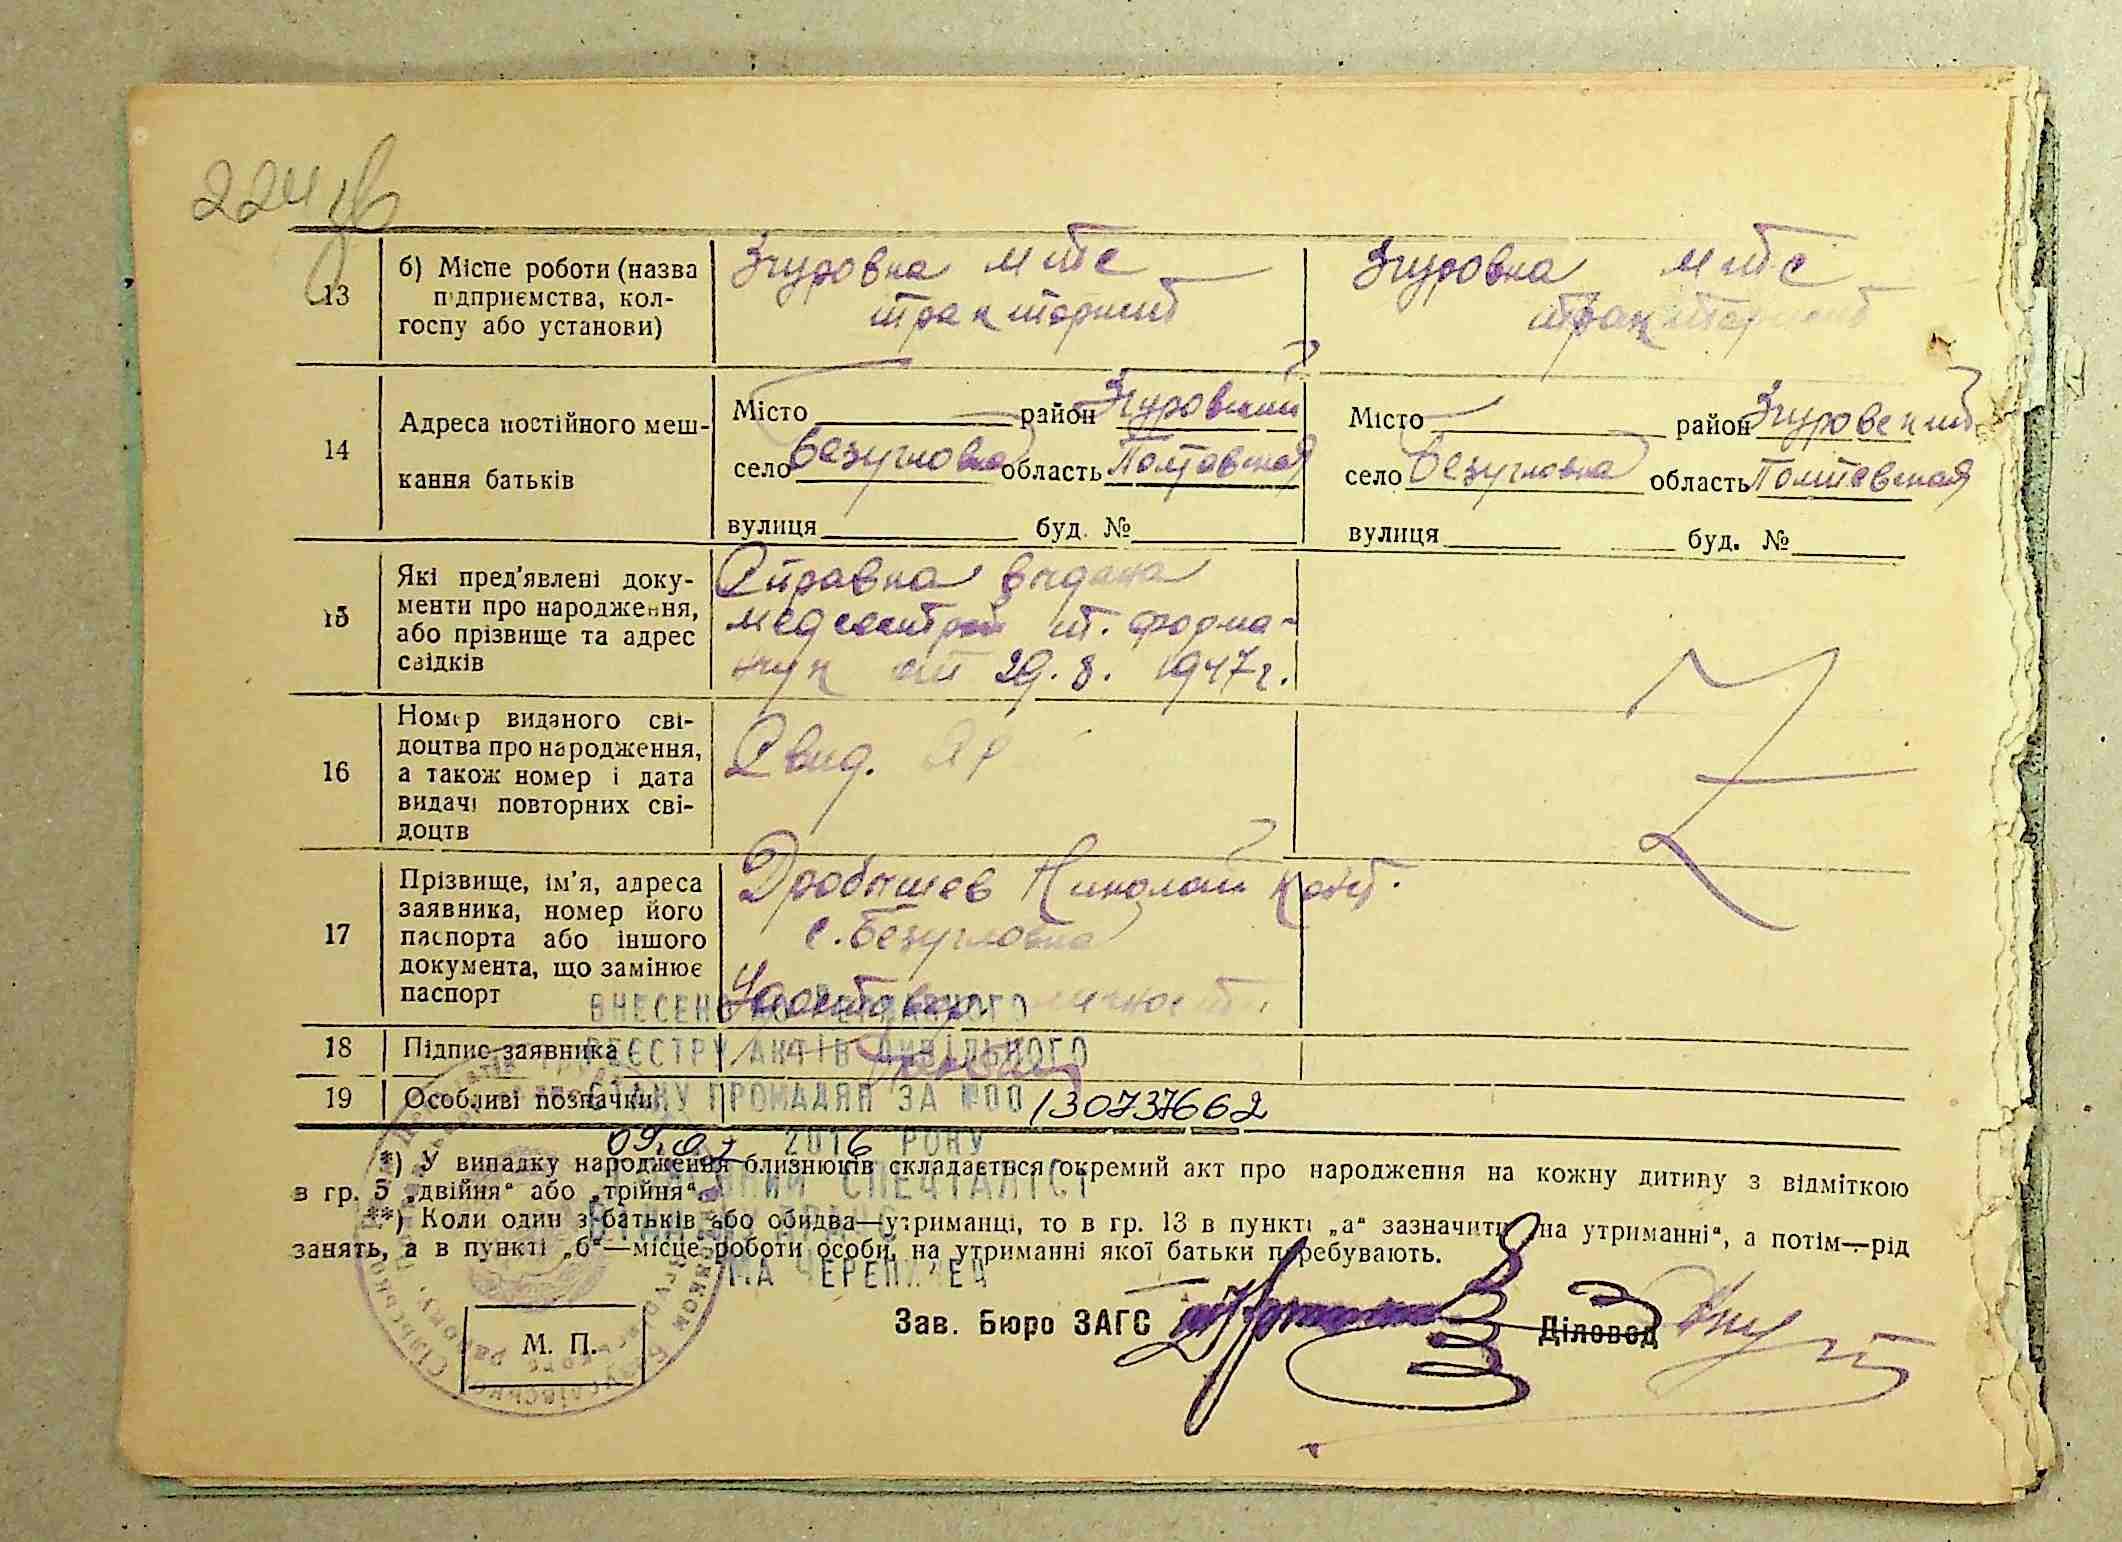 224
13
б) Місце роботи (назва
підприємства, кол-
госпу або установи)
Згуровка мтс
тракторист
Згуровка мтс
тракторист
14
Адреса постійного меш-
кання батьків
Місто район Згуровский
село Безугловка область Полтавская
вулиця буд. №
Місто район Згуровский
село Безугловка область Полтавская
вулиця буд. №
15
Які пред'явлені доку-
менти про народження,
або прізвище та адрес
свідків
Справка выдана
медсестрой т. форма-
нчук от 29.8. 1947г.
16
Номер виданого сві-
доцтва про народження,
а також номер і дата
видачі повторних сві-
доцтв
Свид.
17
Прізвище, ім'я, адреса
заявника, номер його
паспорта або іншого
документа, що замінює
паспорт
Дробышев Николай Конст.
с. Безугловка
Удостовер. личности
18
Підпис заявника
19
Особливі позначки
ВНЕСЕНО ДО ДЕРЖАВНОГО
РЕЄСТРУ АКТІВ ЦИВІЛЬНОГО
СТАНУ ГРОМАДЯН ЗА №00 130737662
09.02 2016 РОКУ
СПЕЦІАЛІСТ
*) У випадку народження близнюців складається окремий акт про народження на кожну дитину з відміткою
в гр. 5 „двійня“ або „трійня“.
**) Коли один з батьків або обидва—утриманці, то в гр. 13 в пункті „а“ зазначити „на утриманні“, а потім—рід
занять, а в пункті „б“—місце роботи особи, на утриманні якої батьки перебувають.
Зав. Бюро ЗАГС
Діловод
М. П.